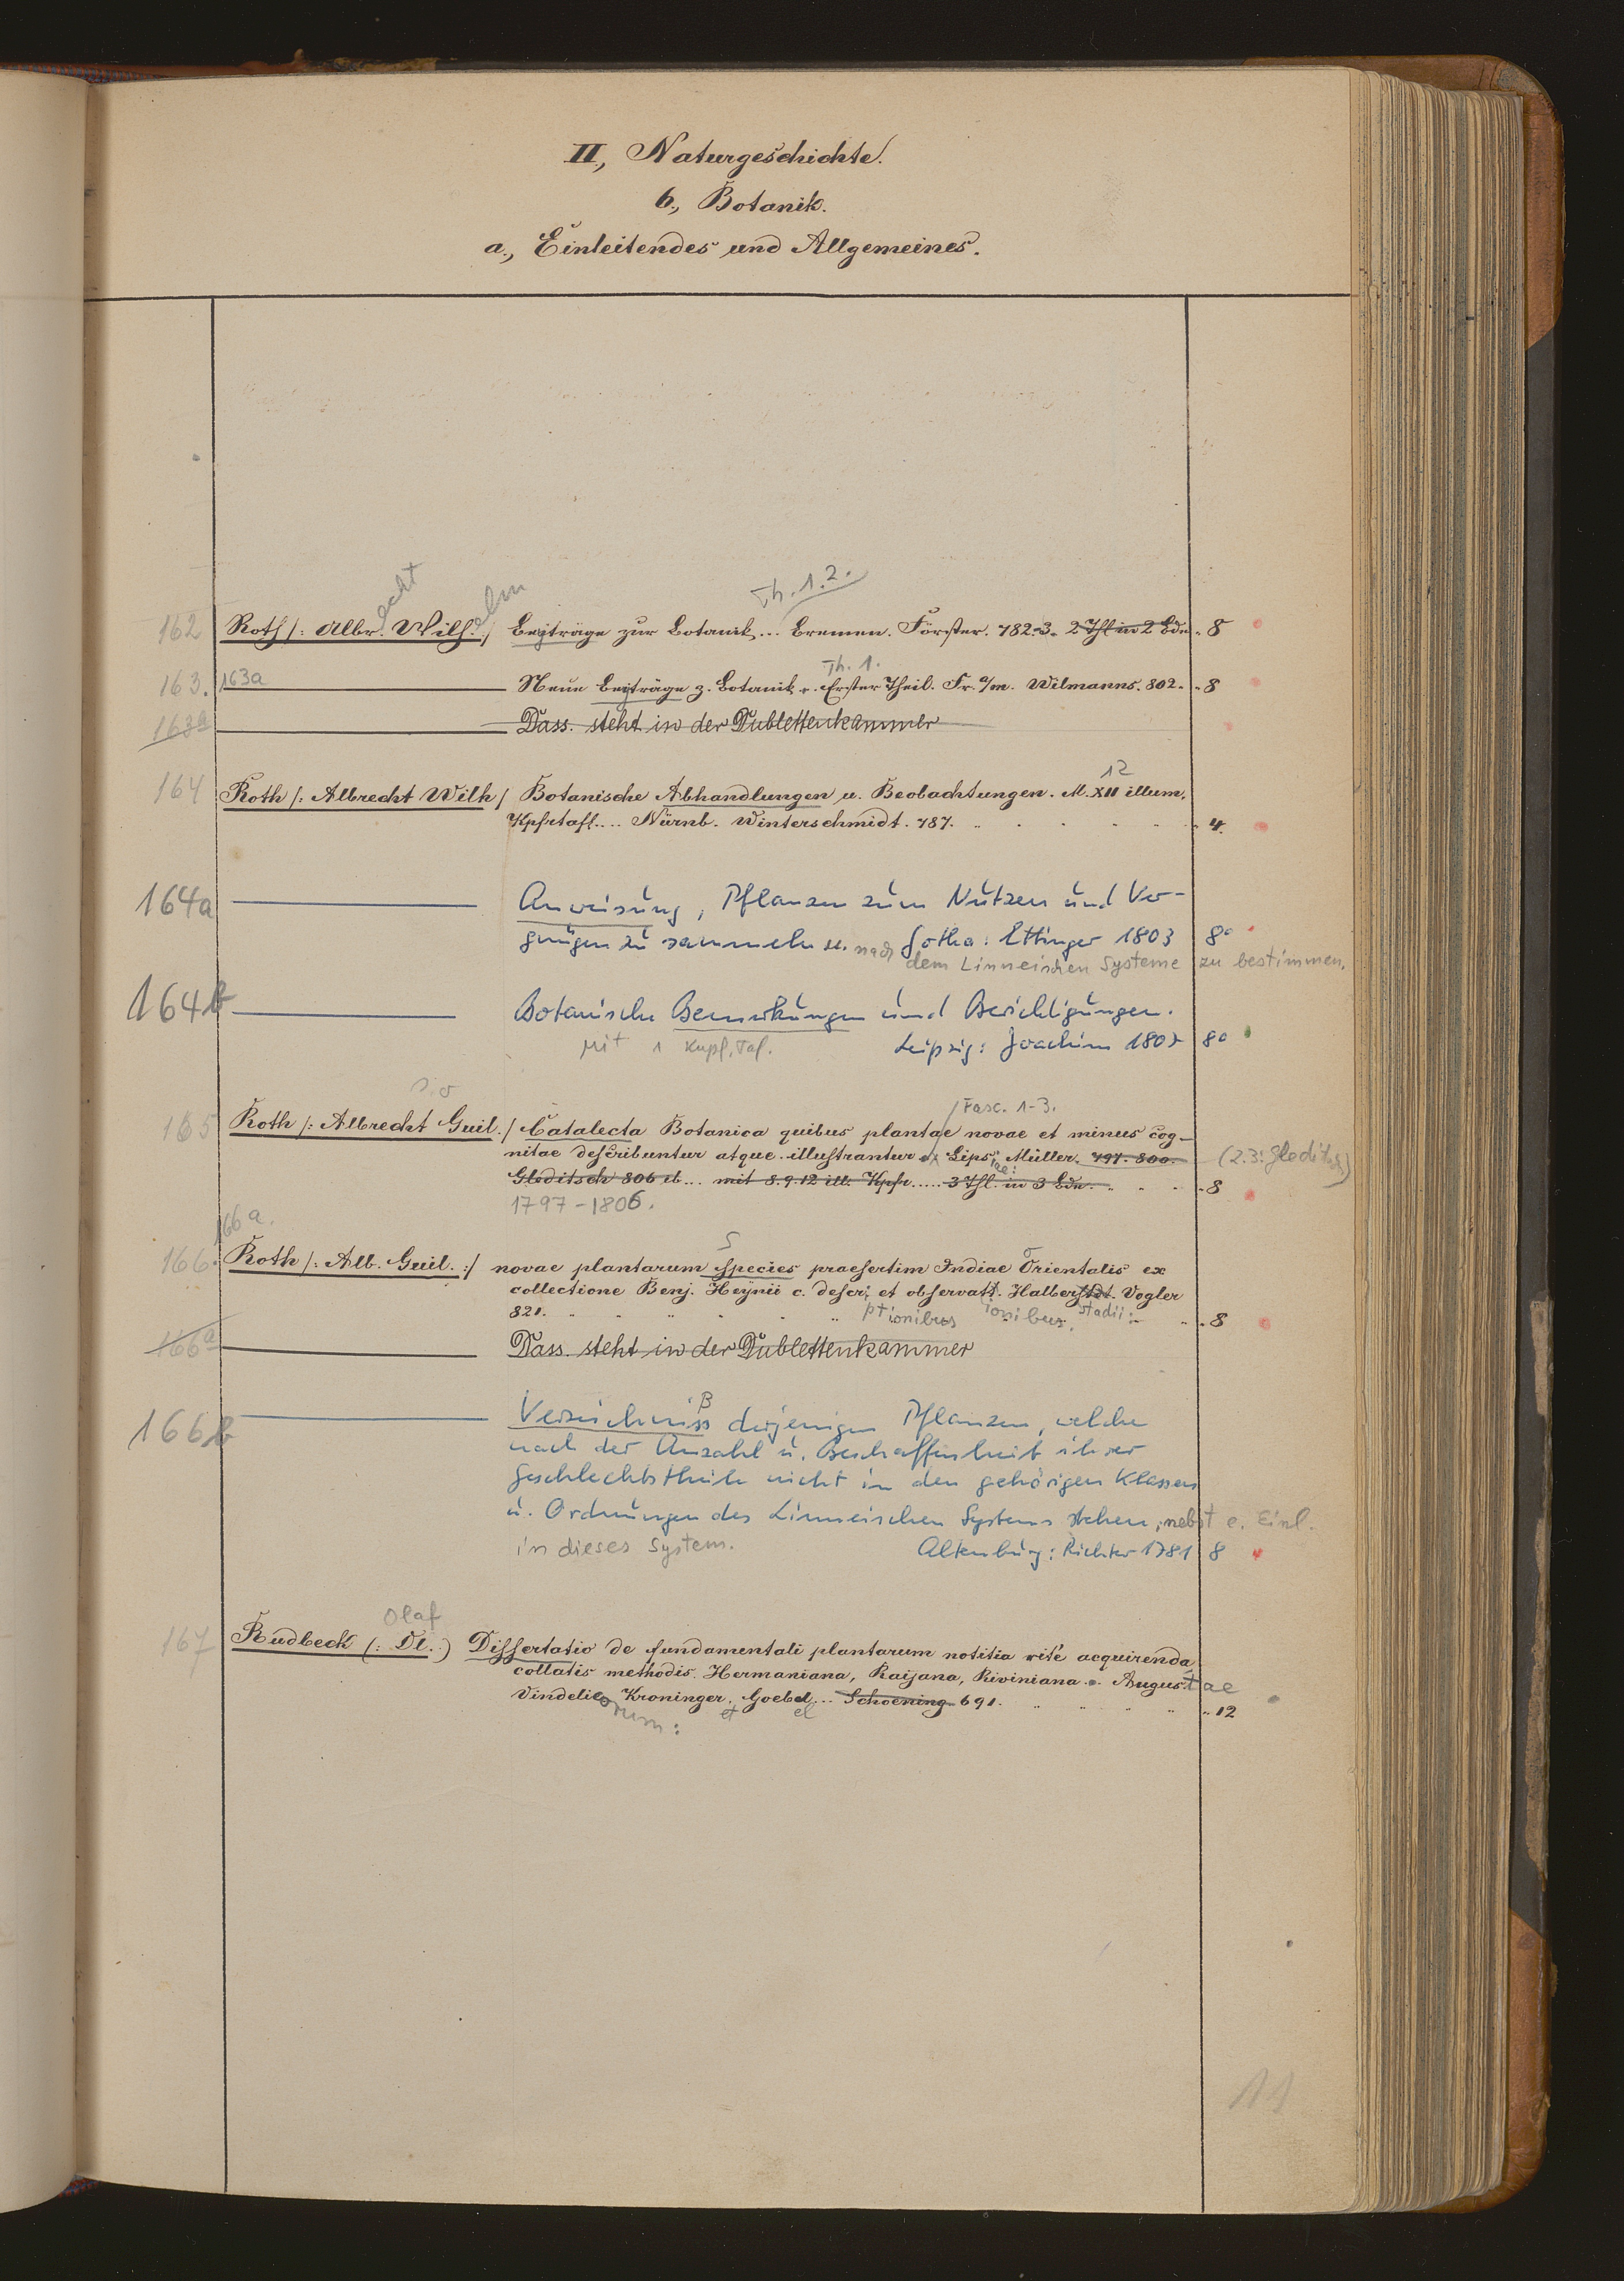 II., Naturgeschichte.
b., Botanik.
a., Einleitendes und Allgemeines.
Th. 1.2.
162 Roth /: Albrecht Wilhelm :/ Beyträge zur Botanik... Bremen. Förster. 782-3. 2 Thl in 2 Bdn 8
Th. 1.
163. 163a Neue Beyträge z. Botanik. Erster Theil. Fr. a/m. Wilmanns. 802. 8
163a Dass. steht in der Dublettenkammer
12
164 Roth /: Albrecht Wilh / Botanische Abhandlungen u. Beobachtungen. M. XII illum.
Kpfrtafl.... Nürnb. Winterschmidt. 787. 4.
164a Anweisung, Pflanzen zum Nutzen und Ver-
gnügen zu sammeln u. nach Gotha: Ettinger 1803 8°
dem Linneischen Systeme zu bestimmen.
164b Botanische Bemerkungen und Berichtigungen.
Mit 1 Kupf. Taf. Leipzig: Joachim 1807 8°
s. o
Fasc. 1-3.
165 Roth /: Albrecht Guil. / Catalecta Botanica quibus plantae novae et minus cog-
nitae describuntur atque illustrantur Lipsiae: Müller. 797. 800. (2.3: Gleditsch)
Gleditsch 806 ... mit 8. 9. 12 ill. Kpfr..... 3 Thl. in 3 Bdn. 8
1797-1806.
166a.
166. Roth /: Alb. Guil. :/ novae plantarum species praesertim Indiae Orientalis ex
collectione Benj. Heynii c. descr. et observatt. Halberstdt. Vogler
821. ptionibus ionibus. stadii: 8
166a Dass. steht in der Dublettenkammer
ß
166b Verzeichniss derjenigen Pflanzen, welche
nach der Anzahl u. Beschaffenheit ihrer
Geschlechtstheile nicht in den gehörigen Klassen
u. Ordnungen des Linneischen Systems stehen, nebst e. Einl.
in dieses System. Altenburg: Richter 1781 8
Olaf
167 Rudbeck (: Ol. :) Dissertatio de fundamentali plantarum notitia rite acquirenda
collatis methodis Hermaniana, Raijana, Riviniana. Augustae
Vindelicorum: Kroninger. et Goebel ... Schoening 691. 12
11